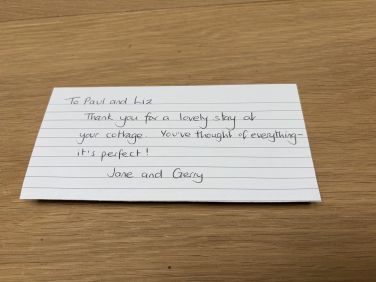 To Paul and Liz
Thank you for a lovely stay at
your cottage. You've thought of everything-
it's perfect!
Jane and Gerry